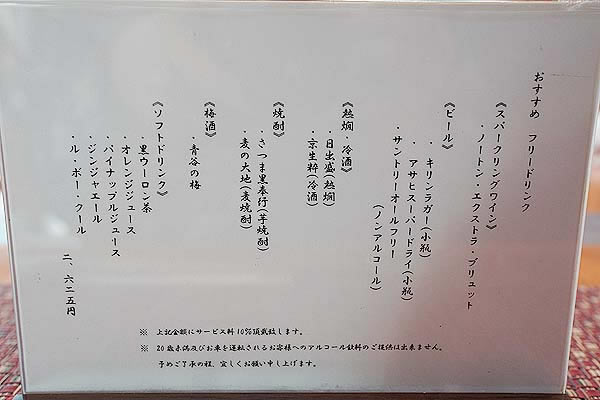 おすすめ フリードリンク
《スパークリングワイン》
・ノートン・エクストラ・ブリュット
《ビール》
・キリンラガー(小瓶)
・アサヒスーパードライ(小瓶)
・サントリーオールフリー
(ノンアルコール)
《熱燗・冷酒》
・日出盛(熱燗)
・京生粋(冷酒)
《焼酎》
・さつま黒奉行(芋焼酎)
・麦の大地(麦焼酎)
《梅酒》
・青谷の梅
《ソフトドリンク》
・黒ウーロン茶
・オレンジジュース
・パイナップルジュース
・ジンジャエール
・ル・ボー・クール
二、六二五円
※ 上記金額にサービス料10%頂戴致します。
※ 20歳未満及びお車を運転されるお客様へのアルコール飲料のご提供は出来ません。
予めご了承の程、宜しくお願い申し上げます。